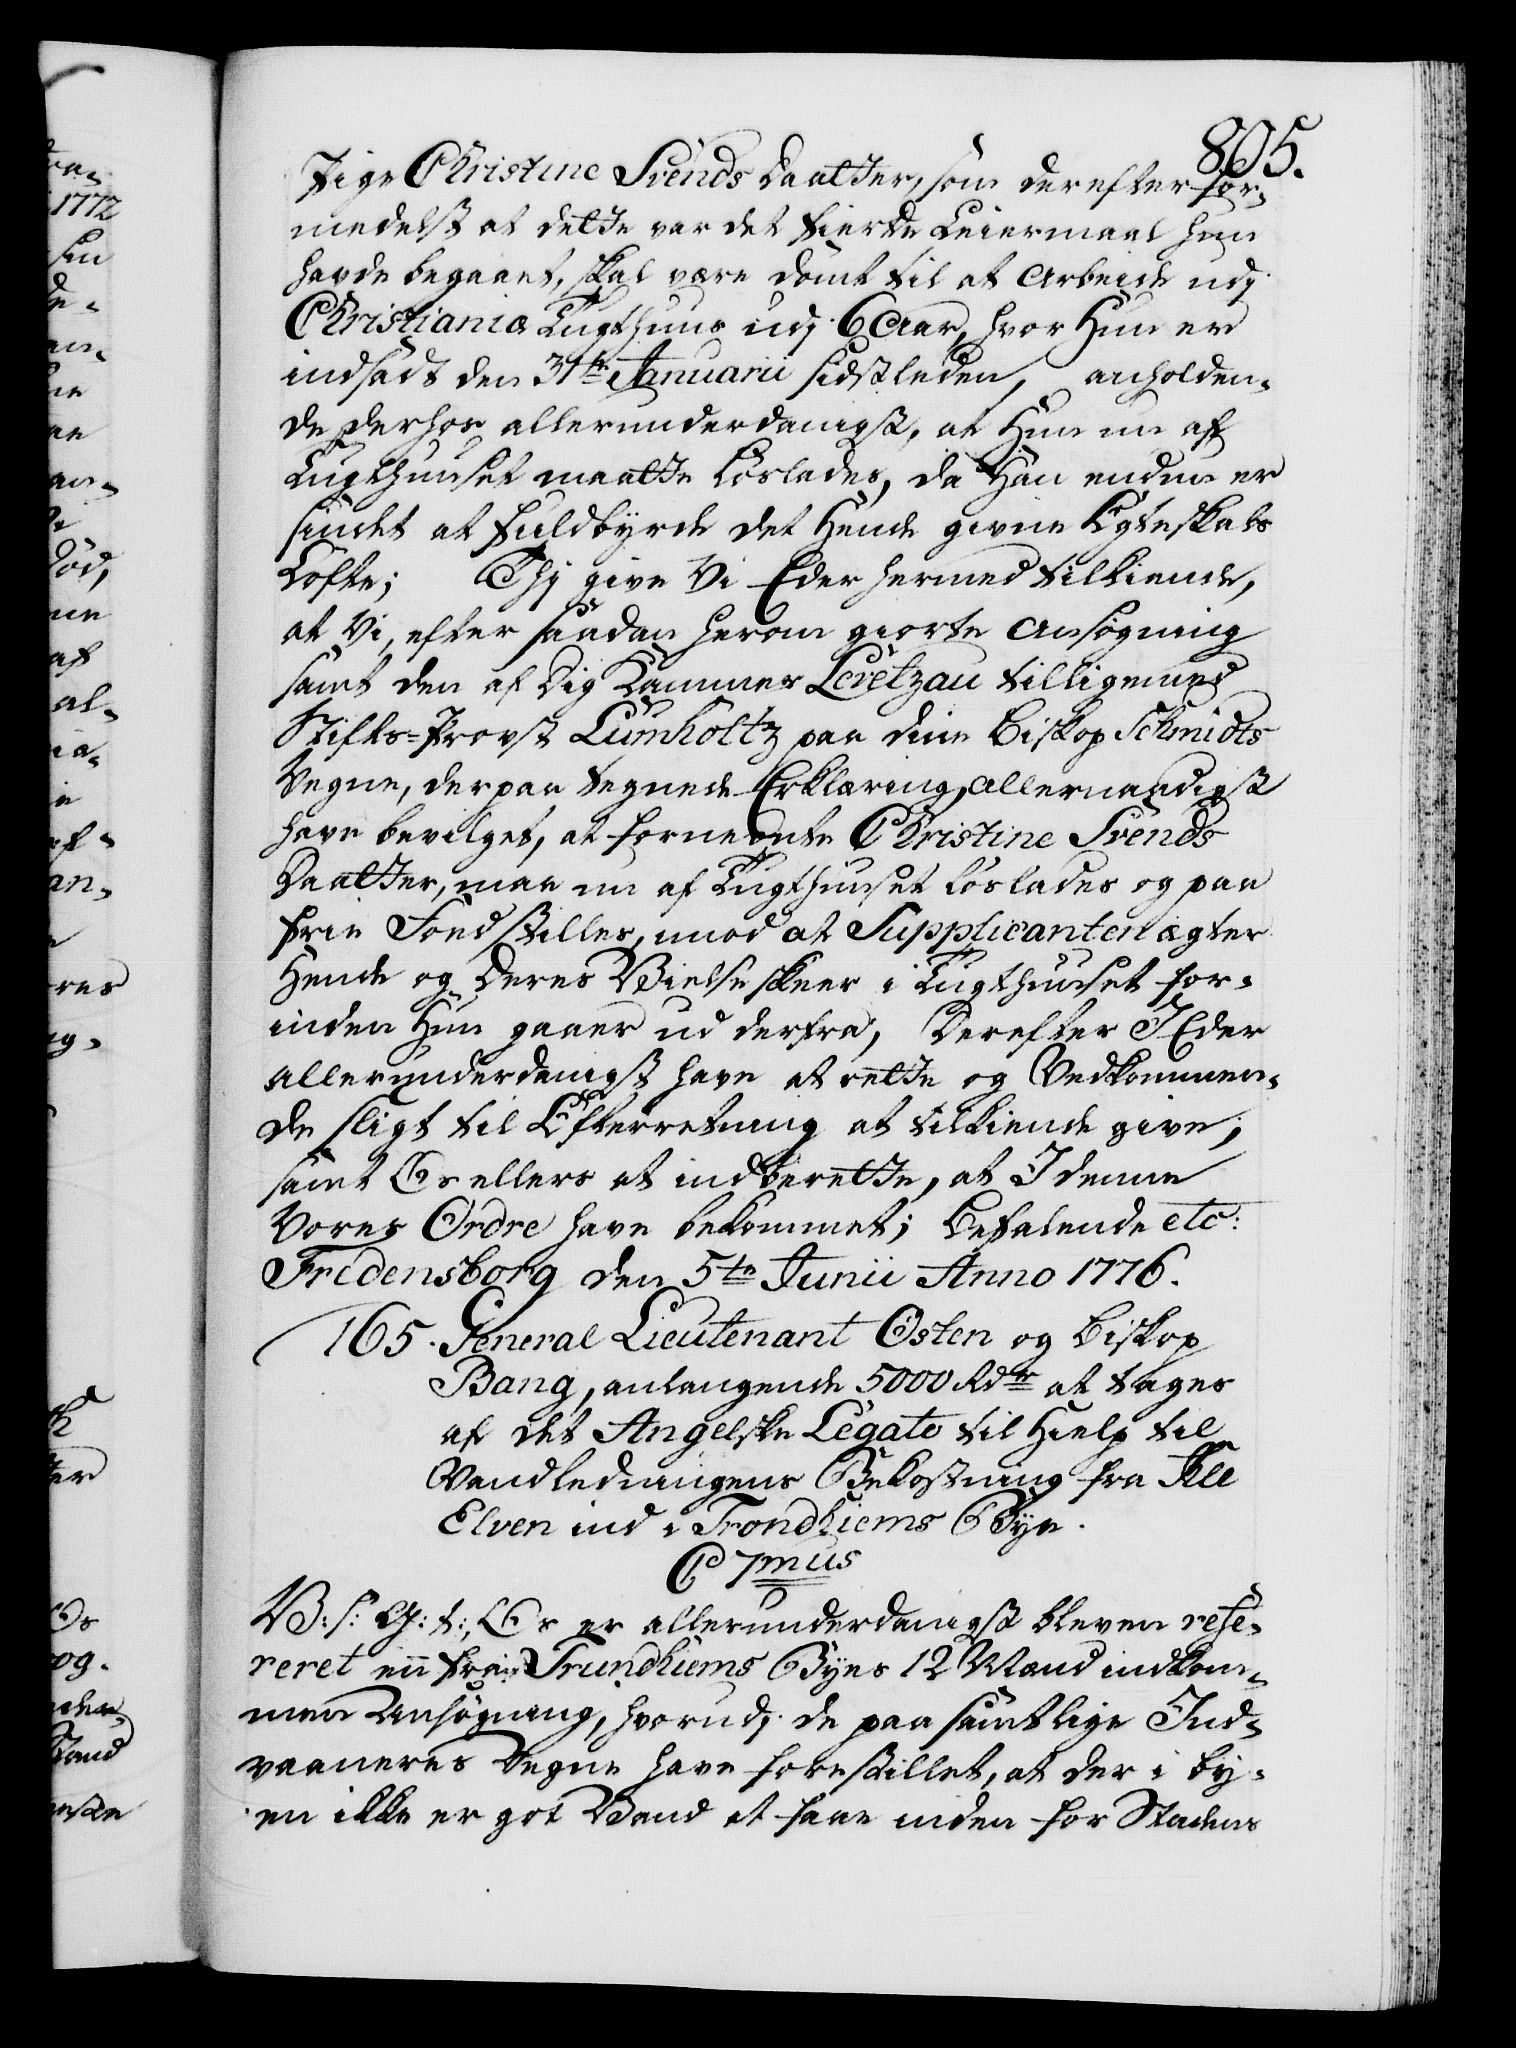 805.
Pige Christine Svends Daatter, som derefter for,
medelst at dette var det fierde Leiermaal hun
havde begaaet, skal være dömt til at Arbeide udj
Christiania Tugthuus udj 6 Aar, hvor Hun er
indsadt den 31te Januarii sidstleden, anholden,
de derhos allerunderdanigst, at Hun nu af
Tugthuuset maatte löslades, da Han endnu er
sindet at fuldbyrde det Hende givne Egteskabs
Löfte; Thj give Vi Eder hermed tilkiende,
at Vi, efter saadan herom giorte Ansögning
samt den af Dig Kammer Levetzau tilligemed
Stifts-Provst Lumholtz paa dine Biskop Schmidts
Vegne, derpaa tegnede Erklæring, allernaadigst
have bevilget, at forneonte Christine Svends
Daatter, maa nu af Tugthuuset löslades og paa
frie Foed stilles, imod at Supplicanten ægter
Hende og deres Vielse skeer i Tugthuuset for,
inden Hun gaaer ud derfra, Derefter I Eder
allerunderdanigst have at rette og Vedkommen,
de sligt til Efterretning at tilkiende give,
samt Os ellers at indberette, at I denne
Vores Ordre have bekommet; Befalende etc:
Fridensborg den 5te Junii Anno 1776.
165. General Lieutenant Osten og Biskop
Bang, anlangende 5000 Rdr at tages
af det Angelske Legato til Hielp til
Vandledningens Bekostning fra Ill
Elven ind i Trondhiems Bye.
C 7mus
V: s: G: t:, Os er allerunderdanigst bleven refe,
reret en fra Trundhiems Byes 12 Mænd indkom,
men Ansögning, hvorudj de paa samtlige Ind,
vaaneres Vegne have forestillet, at der i By,
en ikke er got Vand at faae inden for Stadens